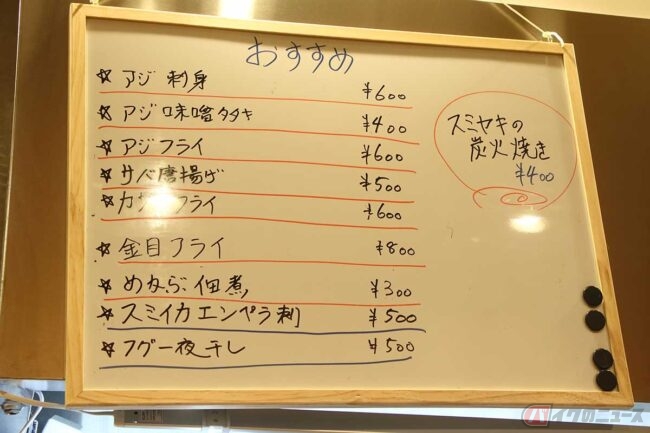 おすすめ
☆ アジ 刺身 ¥600
☆ アジ味噌タタキ ¥400
☆ アジフライ ¥600
☆ サバ唐揚げ ¥500
☆ フライ ¥600
☆ 金目フライ ¥800
☆ 佃煮 ¥300
☆ スミイカエンペラ刺 ¥500
☆ フグ一夜干し ¥500
スミヤキの
炭火焼き
¥400
バイクのニュース